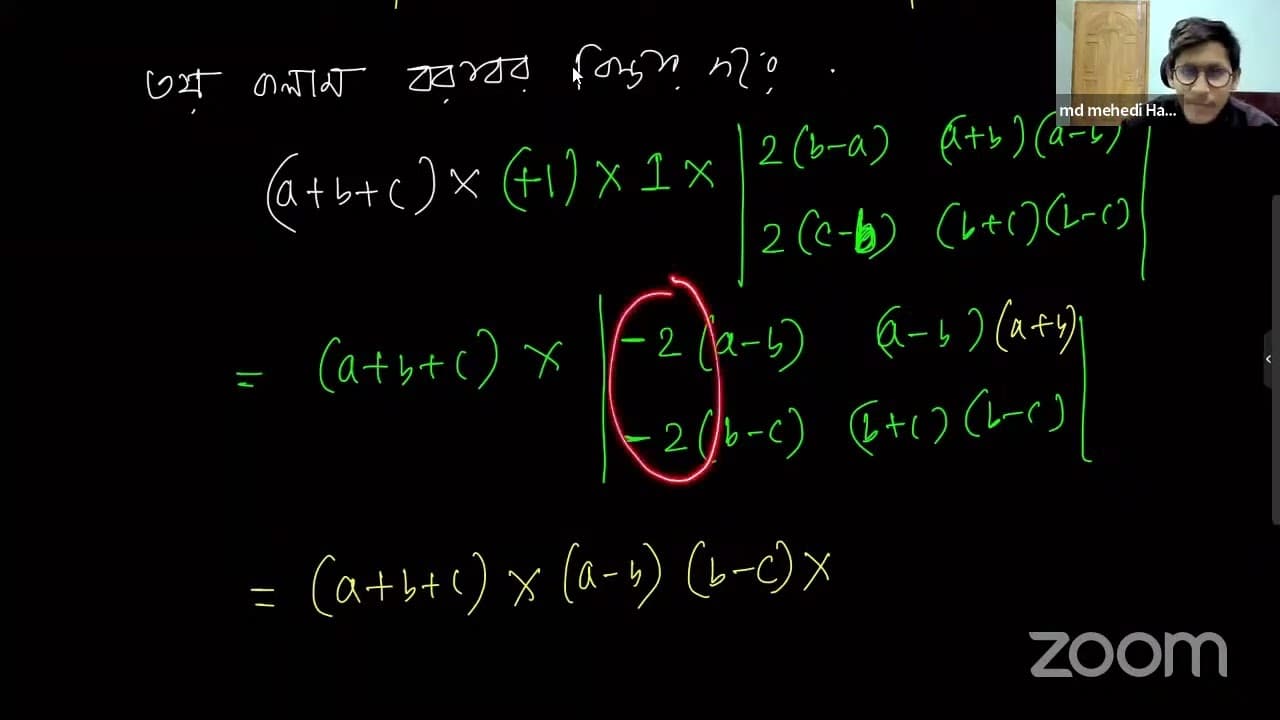 ৩য় কলাম বরাবর বিস্তার করে
md mehedi Ha...
(a+b+c) × (+1) × 1 × | 2(b-a) (a+b)(a-b)
2(c-b) (b+c)(b-c) |
= (a+b+c) × | -2(a-b) (a-b)(a+b)
-2(b-c) (b+c)(b-c) |
= (a+b+c) × (a-b) (b-c) ×
zoom